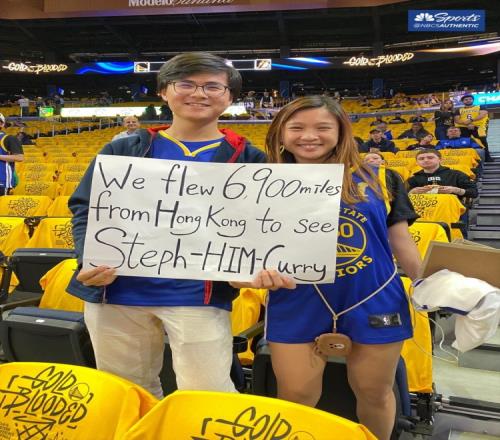 Modelo
NBC Sports
@NBCSAUTHENTIC
GOLD BLOODED
GOLD BLOODED
We flew 6,900 miles
from Hong Kong to see
Steph-HIM-Curry
STATE
WARRIORS
GOLD
BLOODED
GOLD
BLOODED